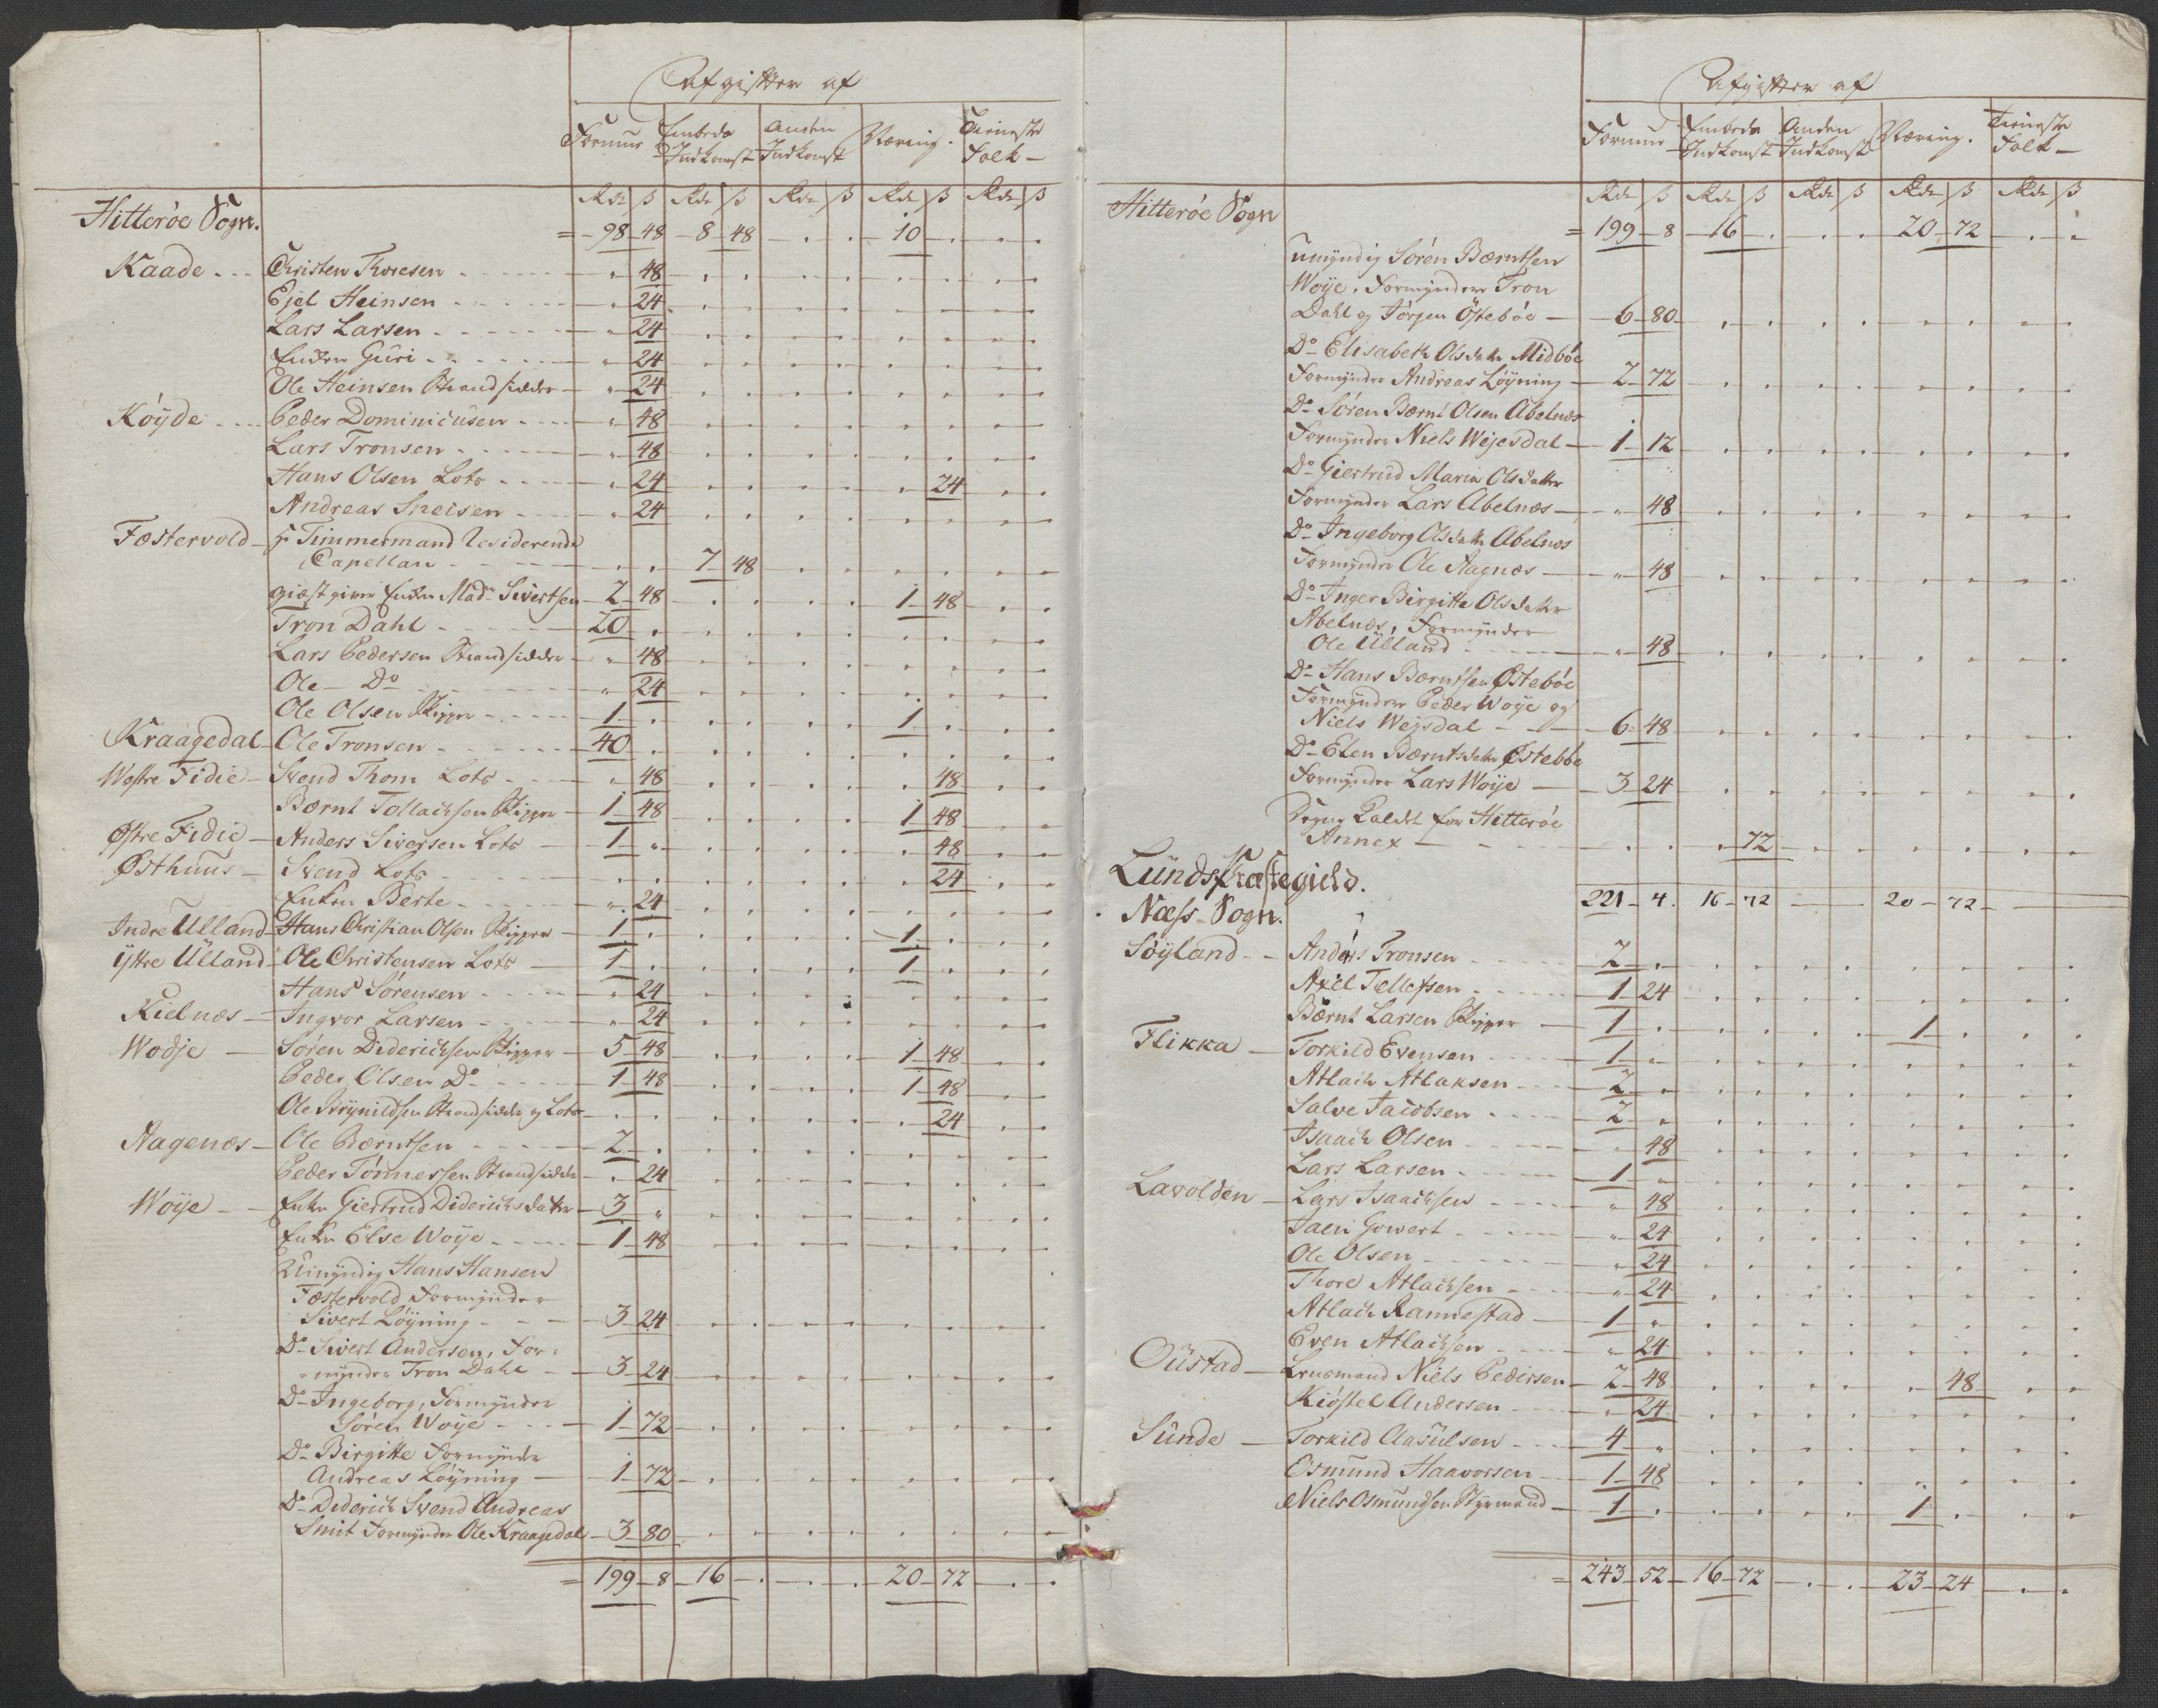 Afgifter af
Formue Embeds Indkomst Anden Indkomst Næring. Tieneste Folk
Rdr ß Rdr ß Rdr ß Rdr ß Rdr ß
Hitterøe Sogn. = 98 48 8 48 . . 10 . . .
Kaade Christen Thoresen " 48
Ejel Heinsen " 24
Lars Larsen " 24
Enken Guri " 24
Ole Heinsen Strandsidder " 24
Køyde Peder Dominicusen " 48
Lars Tronsen " 48
Hans Olsen Lots " 24 " 24
Andreas Sneisen " 24
Fæstervold Hr Timmermand Residerende
Capellan . . 7 48
giæstgiver Enken Madme Sivertsen 2 48 1 48
Tron Dahl 20 .
Lars Pedersen Strandsidder " 48
Ole Do " 24
Ole Olsen Skipper 1 . 1 .
Kraagedal Ole Tronsen 40 .
Westre Fidie Svend Thom Lots " 48 . 48
Bærnt Tollachsen Skipper 1 48 1 48
Østre Fidie Anders Siversen Lots 1 " . 48
Østhuus Svend Lots . . . 24
Enken Berte " 24
Indre Ulland Hans Christian Olsen Skipper 1 . 1 .
Ÿttre Ulland Ole Christensen Lots 1 . 1 .
Hans Sørensen " 24
Kielnæs Ingvor Larsen " 24
Wodje Søren Diderichsen Skipper 5 48 1 48
Peder Olsen Do 1 48 1 48
Ole Brynildsen Strandsidder og Lots . . . 24
Aagenæs Ole Bærntsen 2 .
Peder Tønnessen Strandsidder . 24
Woye Enke Giertrud Diderichsdatter 3 "
Enke Else Woye 1 48
Umyndig Hans Hansen
Fæstervold Formynder
Sivert Løyning 3 24
Do Sivert Andersen, For-
mynder Tron Dahl 3 24
Do Ingeborg, Formynder
Søren Woye 1 72
Do Birgitte Formynder
Andreas Løyning 1 72
Do Diderich Svend Andreas
Smit Formynder Ole Kraagedal 3 80
= 199 8 16 . . . 20 72 . .
Afgifter af
Formue Embeds Indkomst Anden Indkomst Næring. Tieneste Folk
Rdr ß Rdr ß Rdr ß Rdr ß Rdr ß
Hitterøe Sogn = 199 8 16 . . . 20 72 . .
Umyndig Søren Bærntsen
Woye, Formyndere Tron
Dahl og Jørgen Østebøe 6 80
Do Elisabeth Olsdatter Midbøe
Formynder Andreas Løyning 2 72
Do Søren Bærnt Olsen Abelnæs
Formynder Niels Wejesdal 1 12
Do Giertrud Maria Olsdatter
Formynder Lars Abelnæs " 48
Do Ingeborg Olsdatter Abelnæs
Formynder Ole Aagnæs " 48
Do Inger Birgitte Olsdatter
Abelnæs, Formynder
Ole Ulland " 48
Do Hans Bærntsen Østebøe
Formyndere Peder Woye og
Niels Weysdal 6 48
Do Elen Bærntsdatter Østebøe
Formynder Lars Woye 3 24
Sogne Kaldet for Hitterøe
Annex . . . 72
Lunds Præstegield.
221 4 16 72 20 72
Næss Sogn.
Søyland Anders Tronsen 2 .
Axel Tellefsen 1 24
Bærnt Larsen Skipper 1 . 1 .
Flikka Torkild Evensen 1 "
Atlach Atlaksen 2 "
Salve Jacobsen 2 "
Isaach Olsen " 48
Lars Larsen 1 "
Lavolden Lars Isaachsen " 48
Jaen Gowert " 24
Ole Olsen " 24
Thore Atlachsen " 24
Atlach Rannestad 1 "
Even Atlachsen " 24
Oustad Lensmand Niels Pedersen 2 48 . 48
Kiøstel Andersen " 24
Sunde Torkild Aasulsen 4 "
Osmund Haavorsen 1 48
Niels Osmundsen Styrmand 1 . 1 .
= 243 52 16 72 . . 23 24 . .